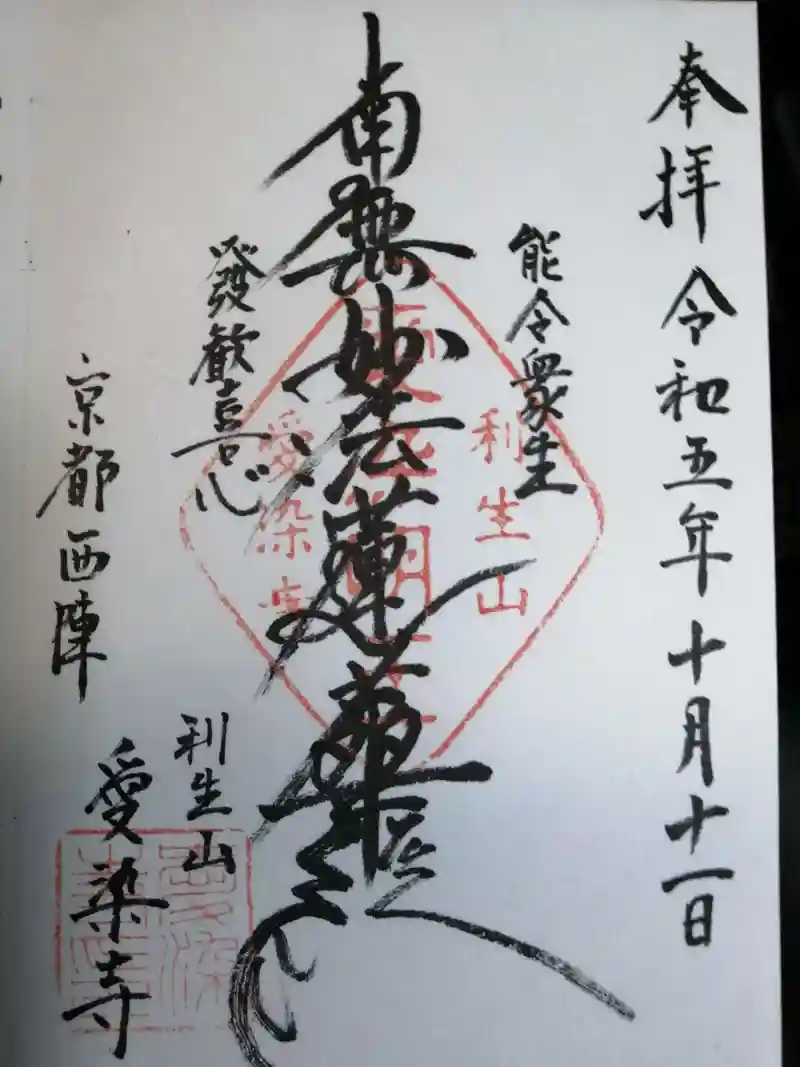 奉拝 令和五年十月十一日
能令衆生
南無妙法蓮華経
發歓喜心
京都西陣
利生山
愛染寺
利生山
愛染寺